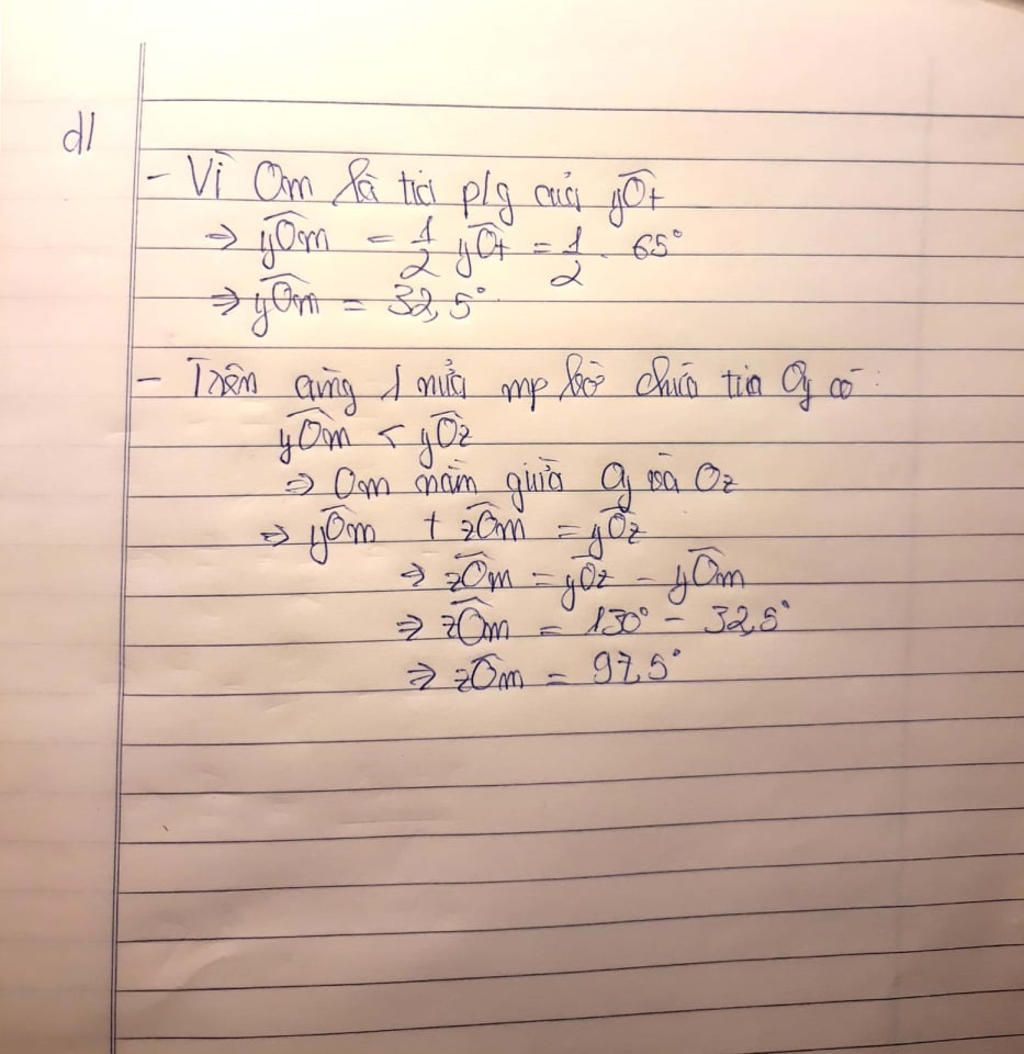 d/
- Vì Om là tia p/g của yOt
⇒ yOm = 1/2 yOt = 1/2 . 65°
⇒ yOm = 32,5°
- Trên cùng 1 nửa mp bờ chứa tia Oy có:
yOm < yOz
⇒ Om nằm giữa Oy và Oz
⇒ yOm + zOm = yOz
⇒ zOm = yOz - yOm
⇒ zOm = 130° - 32,5°
⇒ zOm = 97,5°